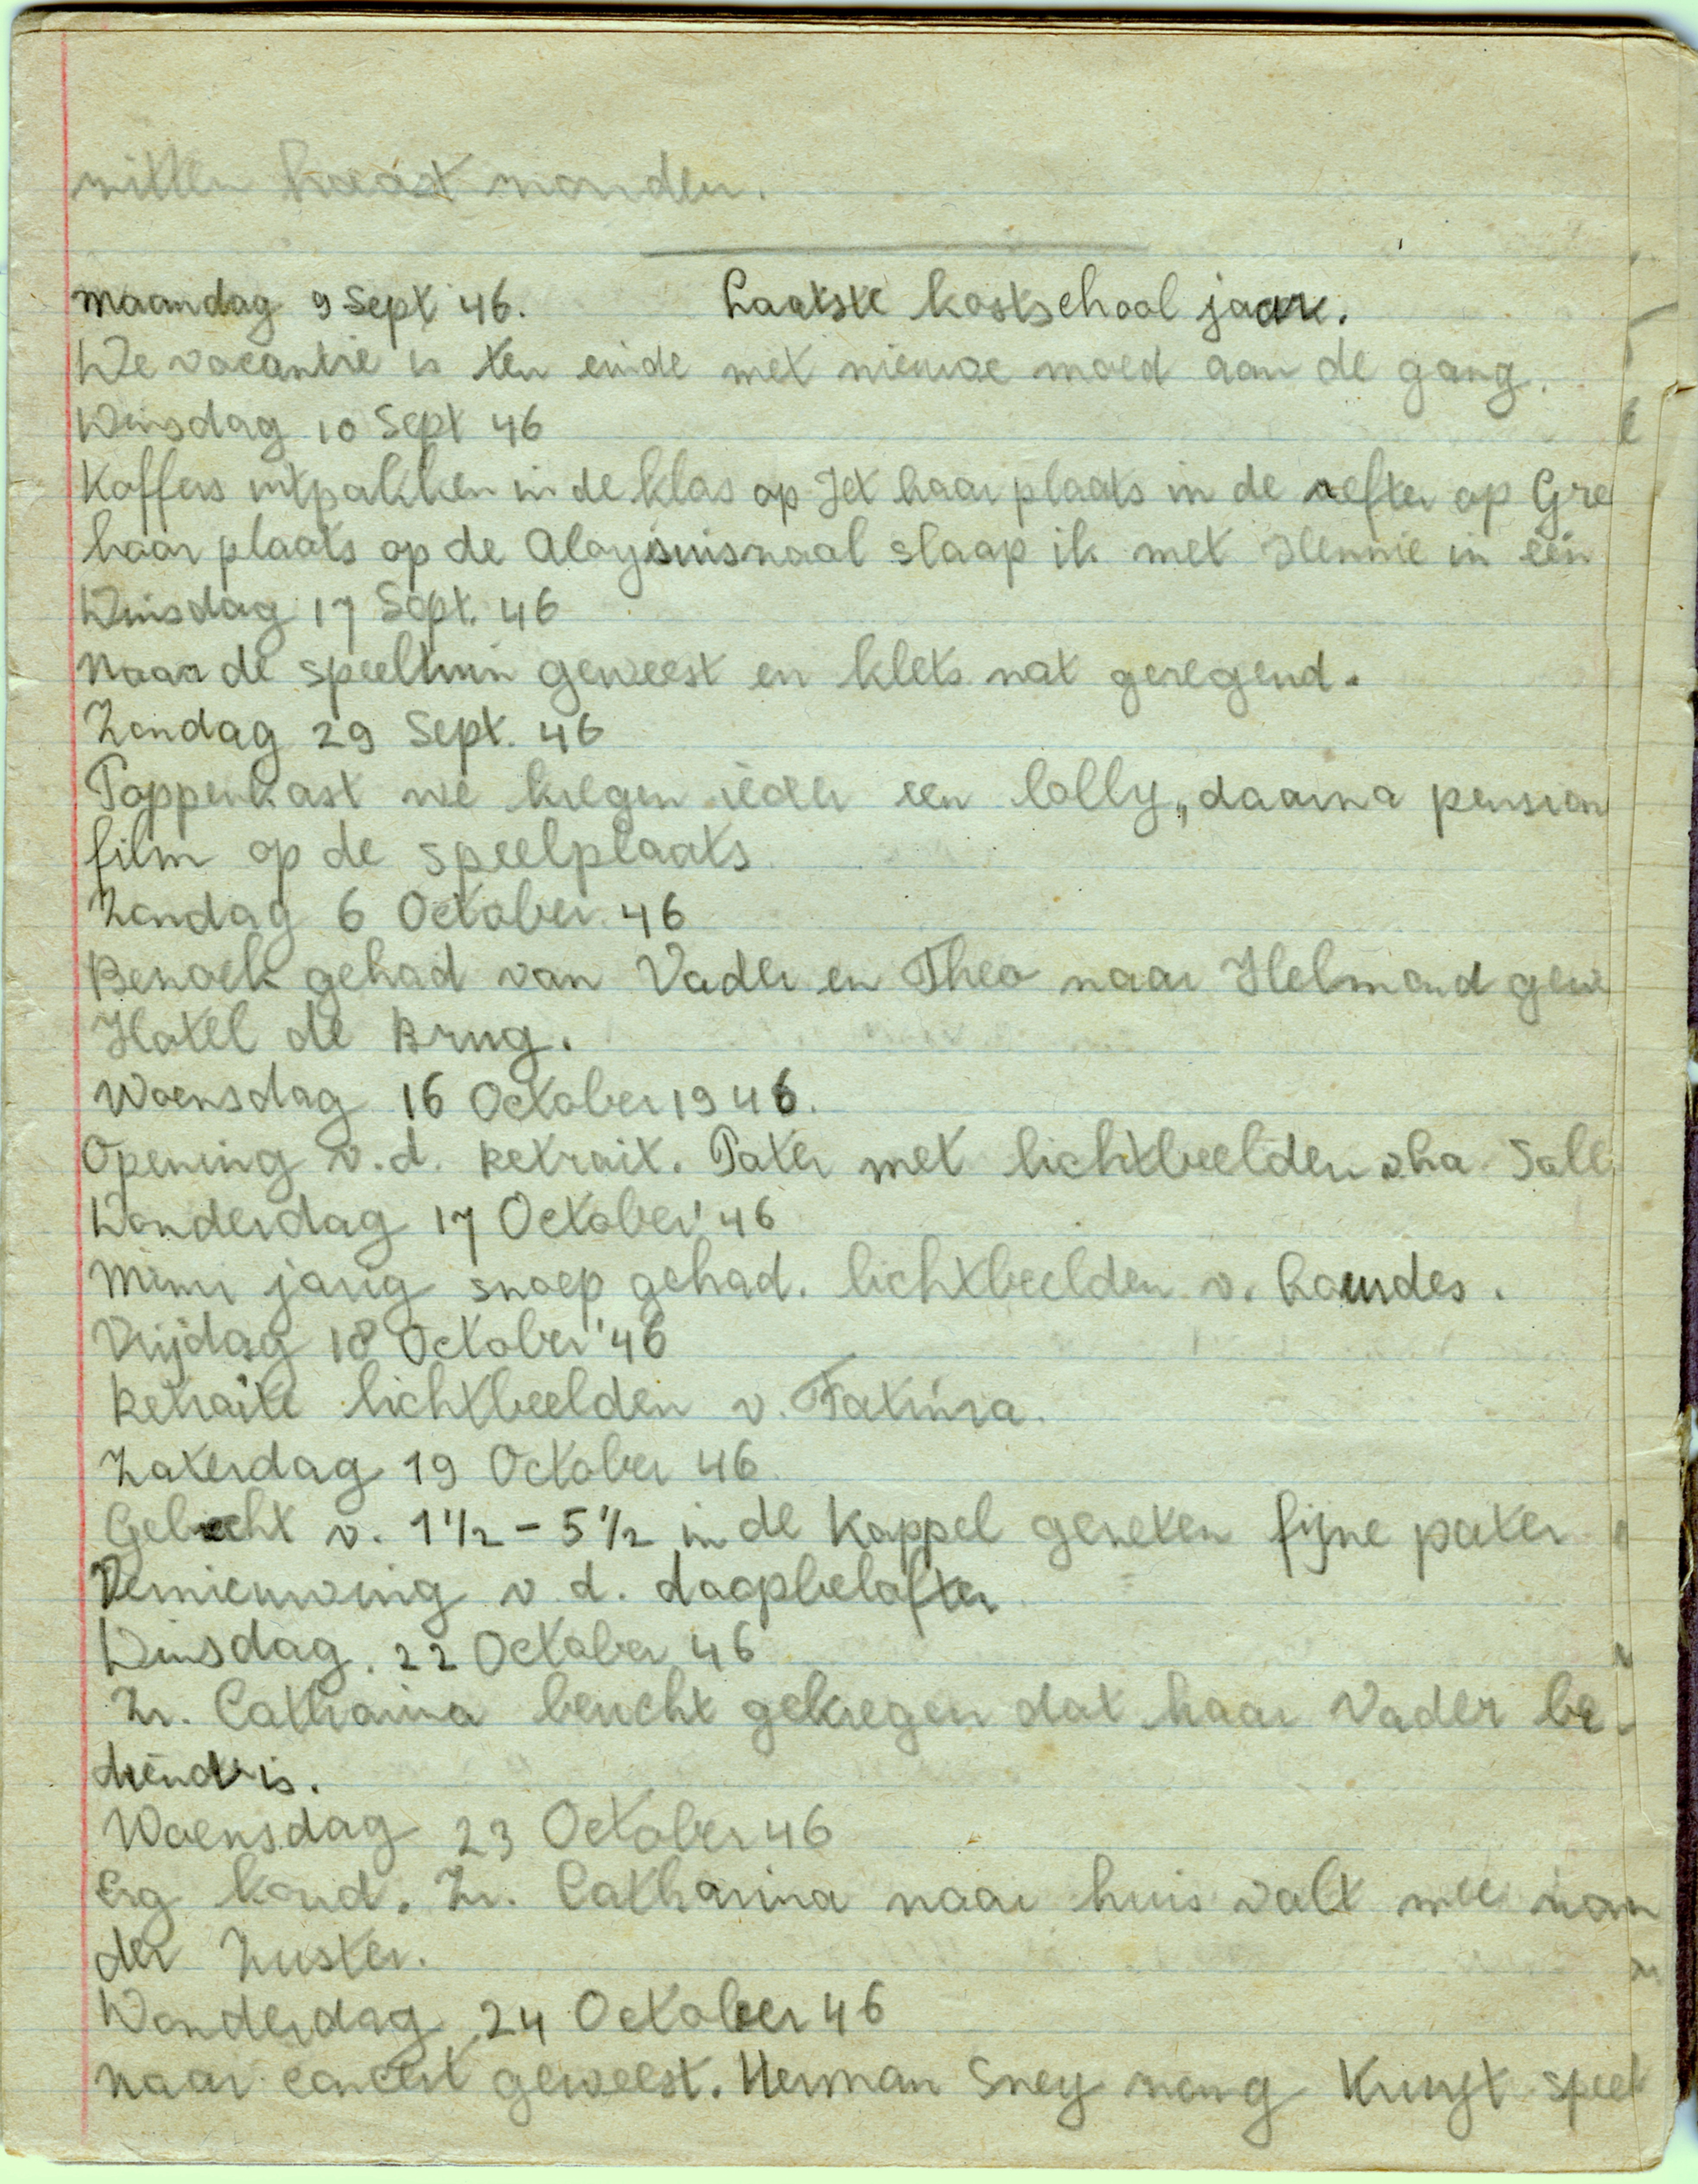 zitten haast zonder.
Maandag 9 Sept 46. Laatste kostschool jaar.
De vacantie is ten einde met nieuwe moed aan de gang.
Dinsdag 10 Sept 46
Koffers uitpakken in de klas op Jet haar plaats in de refter op Gre
haar plaats op de Aloysiuszaal slaap ik met Hennie in één
Dinsdag 17 Sept. 46
Naar de speeltuin geweest en klets nat geregend.
Zondag 29 Sept. 46
Poppenkast we kregen ieder een lolly, daarna pension
film op de speelplaats
Zondag 6 October 46
Bezoek gehad van Vader en Theo naar Helmond gewe
Hotel de Brug.
Woensdag 16 October 1946.
Opening v.d. Retrait. Pater met lichtbeelden
Donderdag 17 October '46
Mimi jarig snoep gehad. lichtbeelden v. Lourdes.
Vrijdag 18 October '46
Retraite lichtbeelden v. Fatima.
Zaterdag 19 October 46
Gebiecht v. 1½ - 5½ in de Kappel gezeten fijne pater
Vernieuwing v d. doopbelofter
Dinsdag. 22 October 46
Zr. Catharina bericht gekregen dat haar Vader be-
diend is.
Woensdag 23 October 46
Erg koud. Zr. Catharina naar huis valt mee zon
der Zuster.
Donderdag 24 October 46
Naar concert geweest. Herman Sney zong Kunst speel